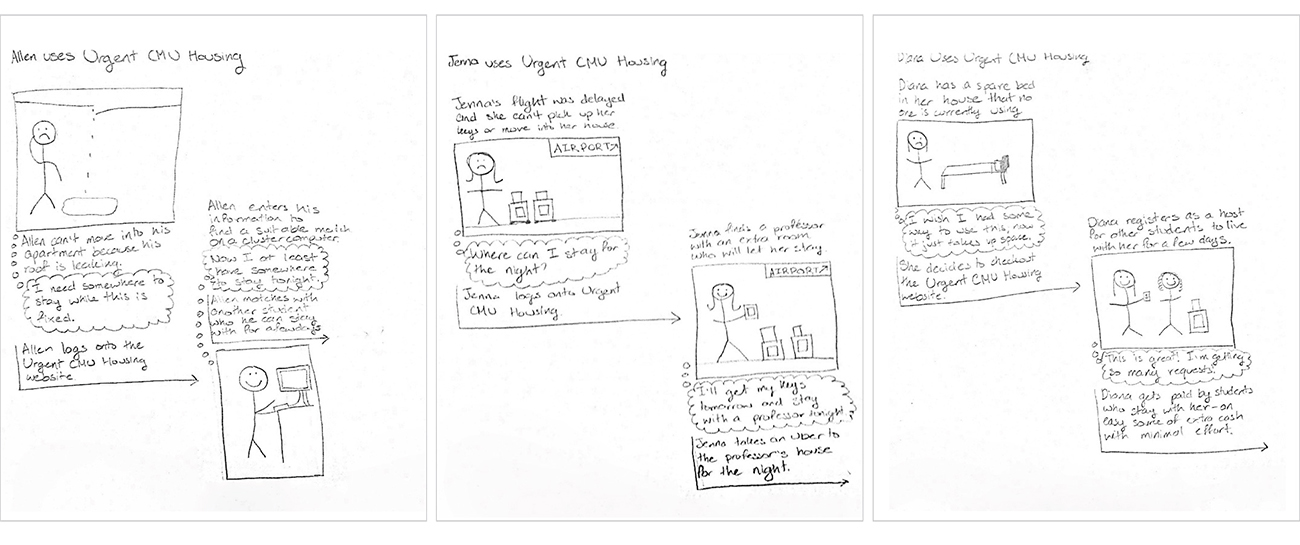 Allen uses Urgent CMU Housing
Allen can't move into his
apartment because his
roof is leaking.
I need somewhere to
stay while this is
fixed.
Allen logs onto the
Urgent CMU Housing
website
Allen enters his
information to
find a suitable match
on a cluster computer.
Now I at least
have somewhere
to stay tonight.
Allen matches with
another student
who he can stay
with for a few days
Jenna uses Urgent CMU Housing
Jenna's flight was delayed
and she can't pick up her
keys or move into her house
AIRPORT
Where can I stay for
the night?
Jenna logs onto Urgent
CMU Housing.
Jenna finds a professor
with an extra room
who will let her stay.
AIRPORT
I'll get my keys
tomorrow and stay
with a professor tonight
Jenna takes an Uber to
the professor's house
for the night.
Diana Uses Urgent CMU Housing
Diana has a spare bed
in her house that no
one is currently using
I wish I had some
way to use this, now
it just takes up space.
She decides to checkout
the Urgent CMU Housing
website.
Diana registers as a host
for other students to live
with her for a few days.
This is great! I'm getting
so many requests!
Diana gets paid by students
who stay with her-an
easy some of extra cash
with minimal effort.